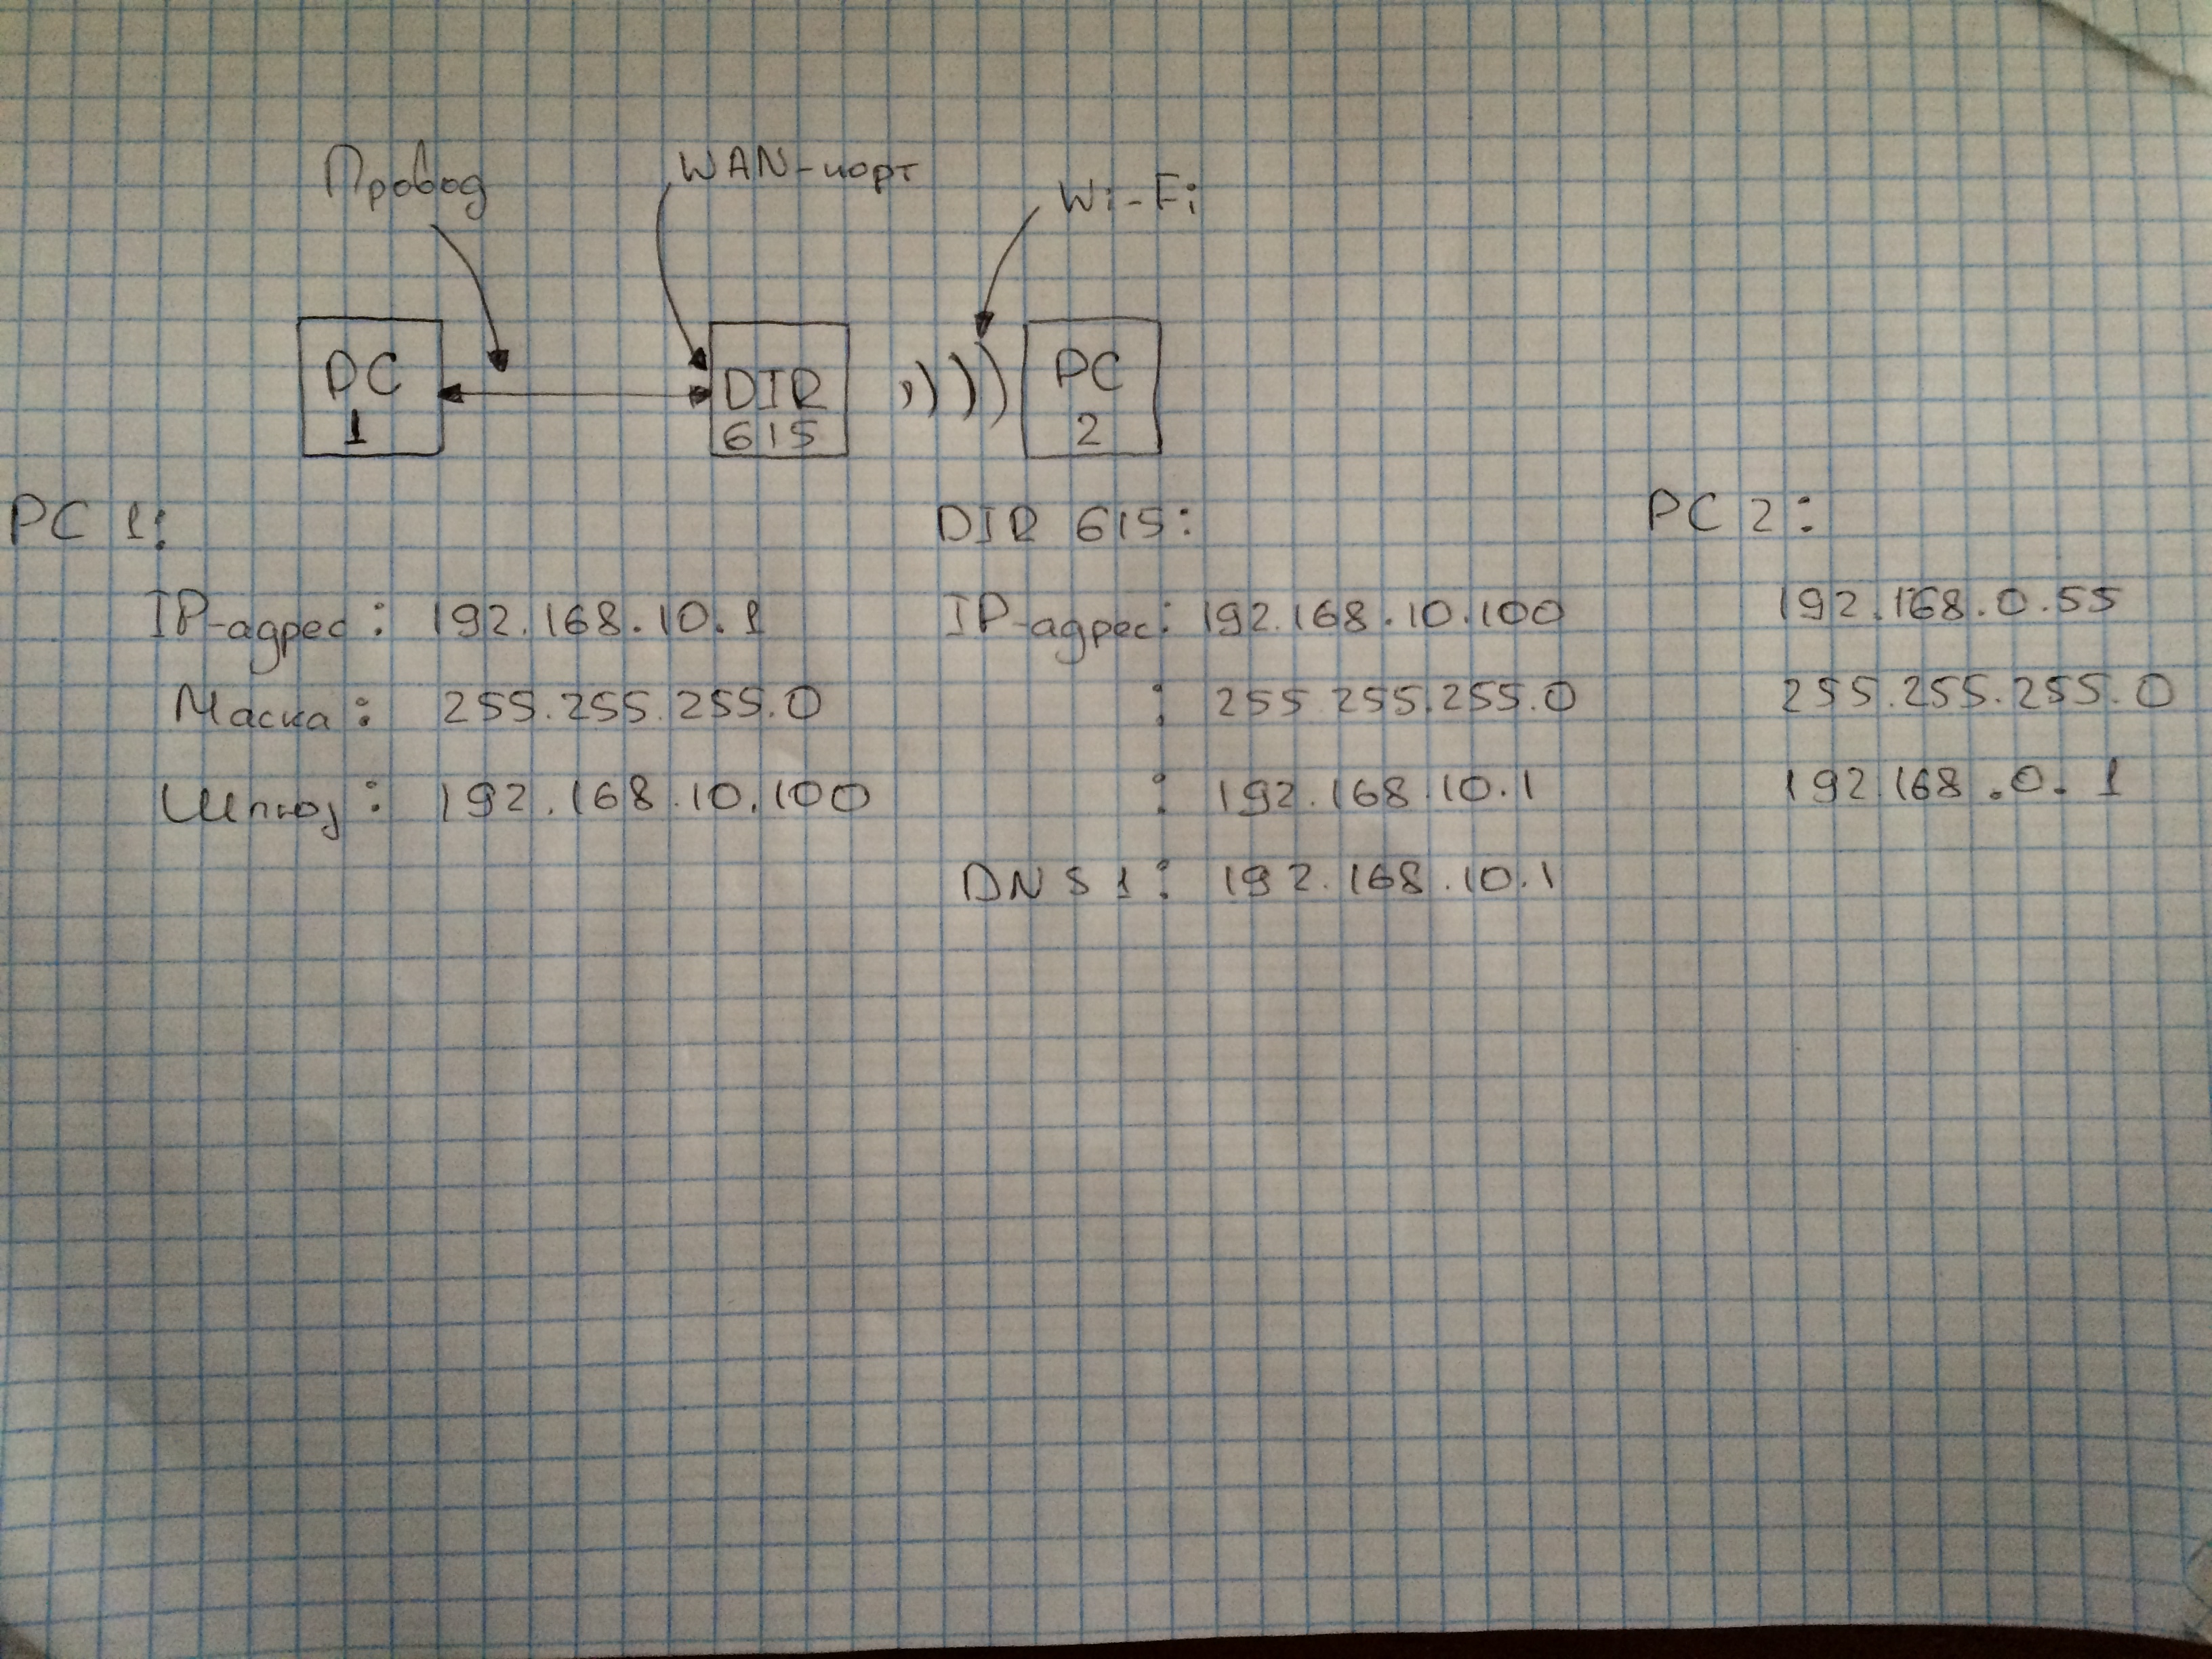 Провод
WAN-порт
Wi-Fi
PC
1
DIR
615
PC
2
PC 1:
IP-адрес: 192.168.10.1
Маска: 255.255.255.0
Шлюз: 192.168.10.100
DIR 615:
IP-адрес: 192.168.10.100
: 255.255.255.0
: 192.168.10.1
DNS 1: 192.168.10.1
PC 2:
192.168.0.55
255.255.255.0
192.168.0.1